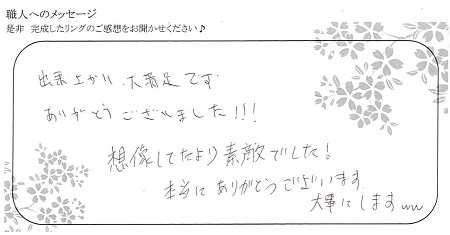 職人へのメッセージ
是非 完成したリングのご感想をお聞かせください♪
出来上がり 大満足です
ありがとうございました!!!
想像してたより素敵でした!
本当にありがとうございます
大事にしますww